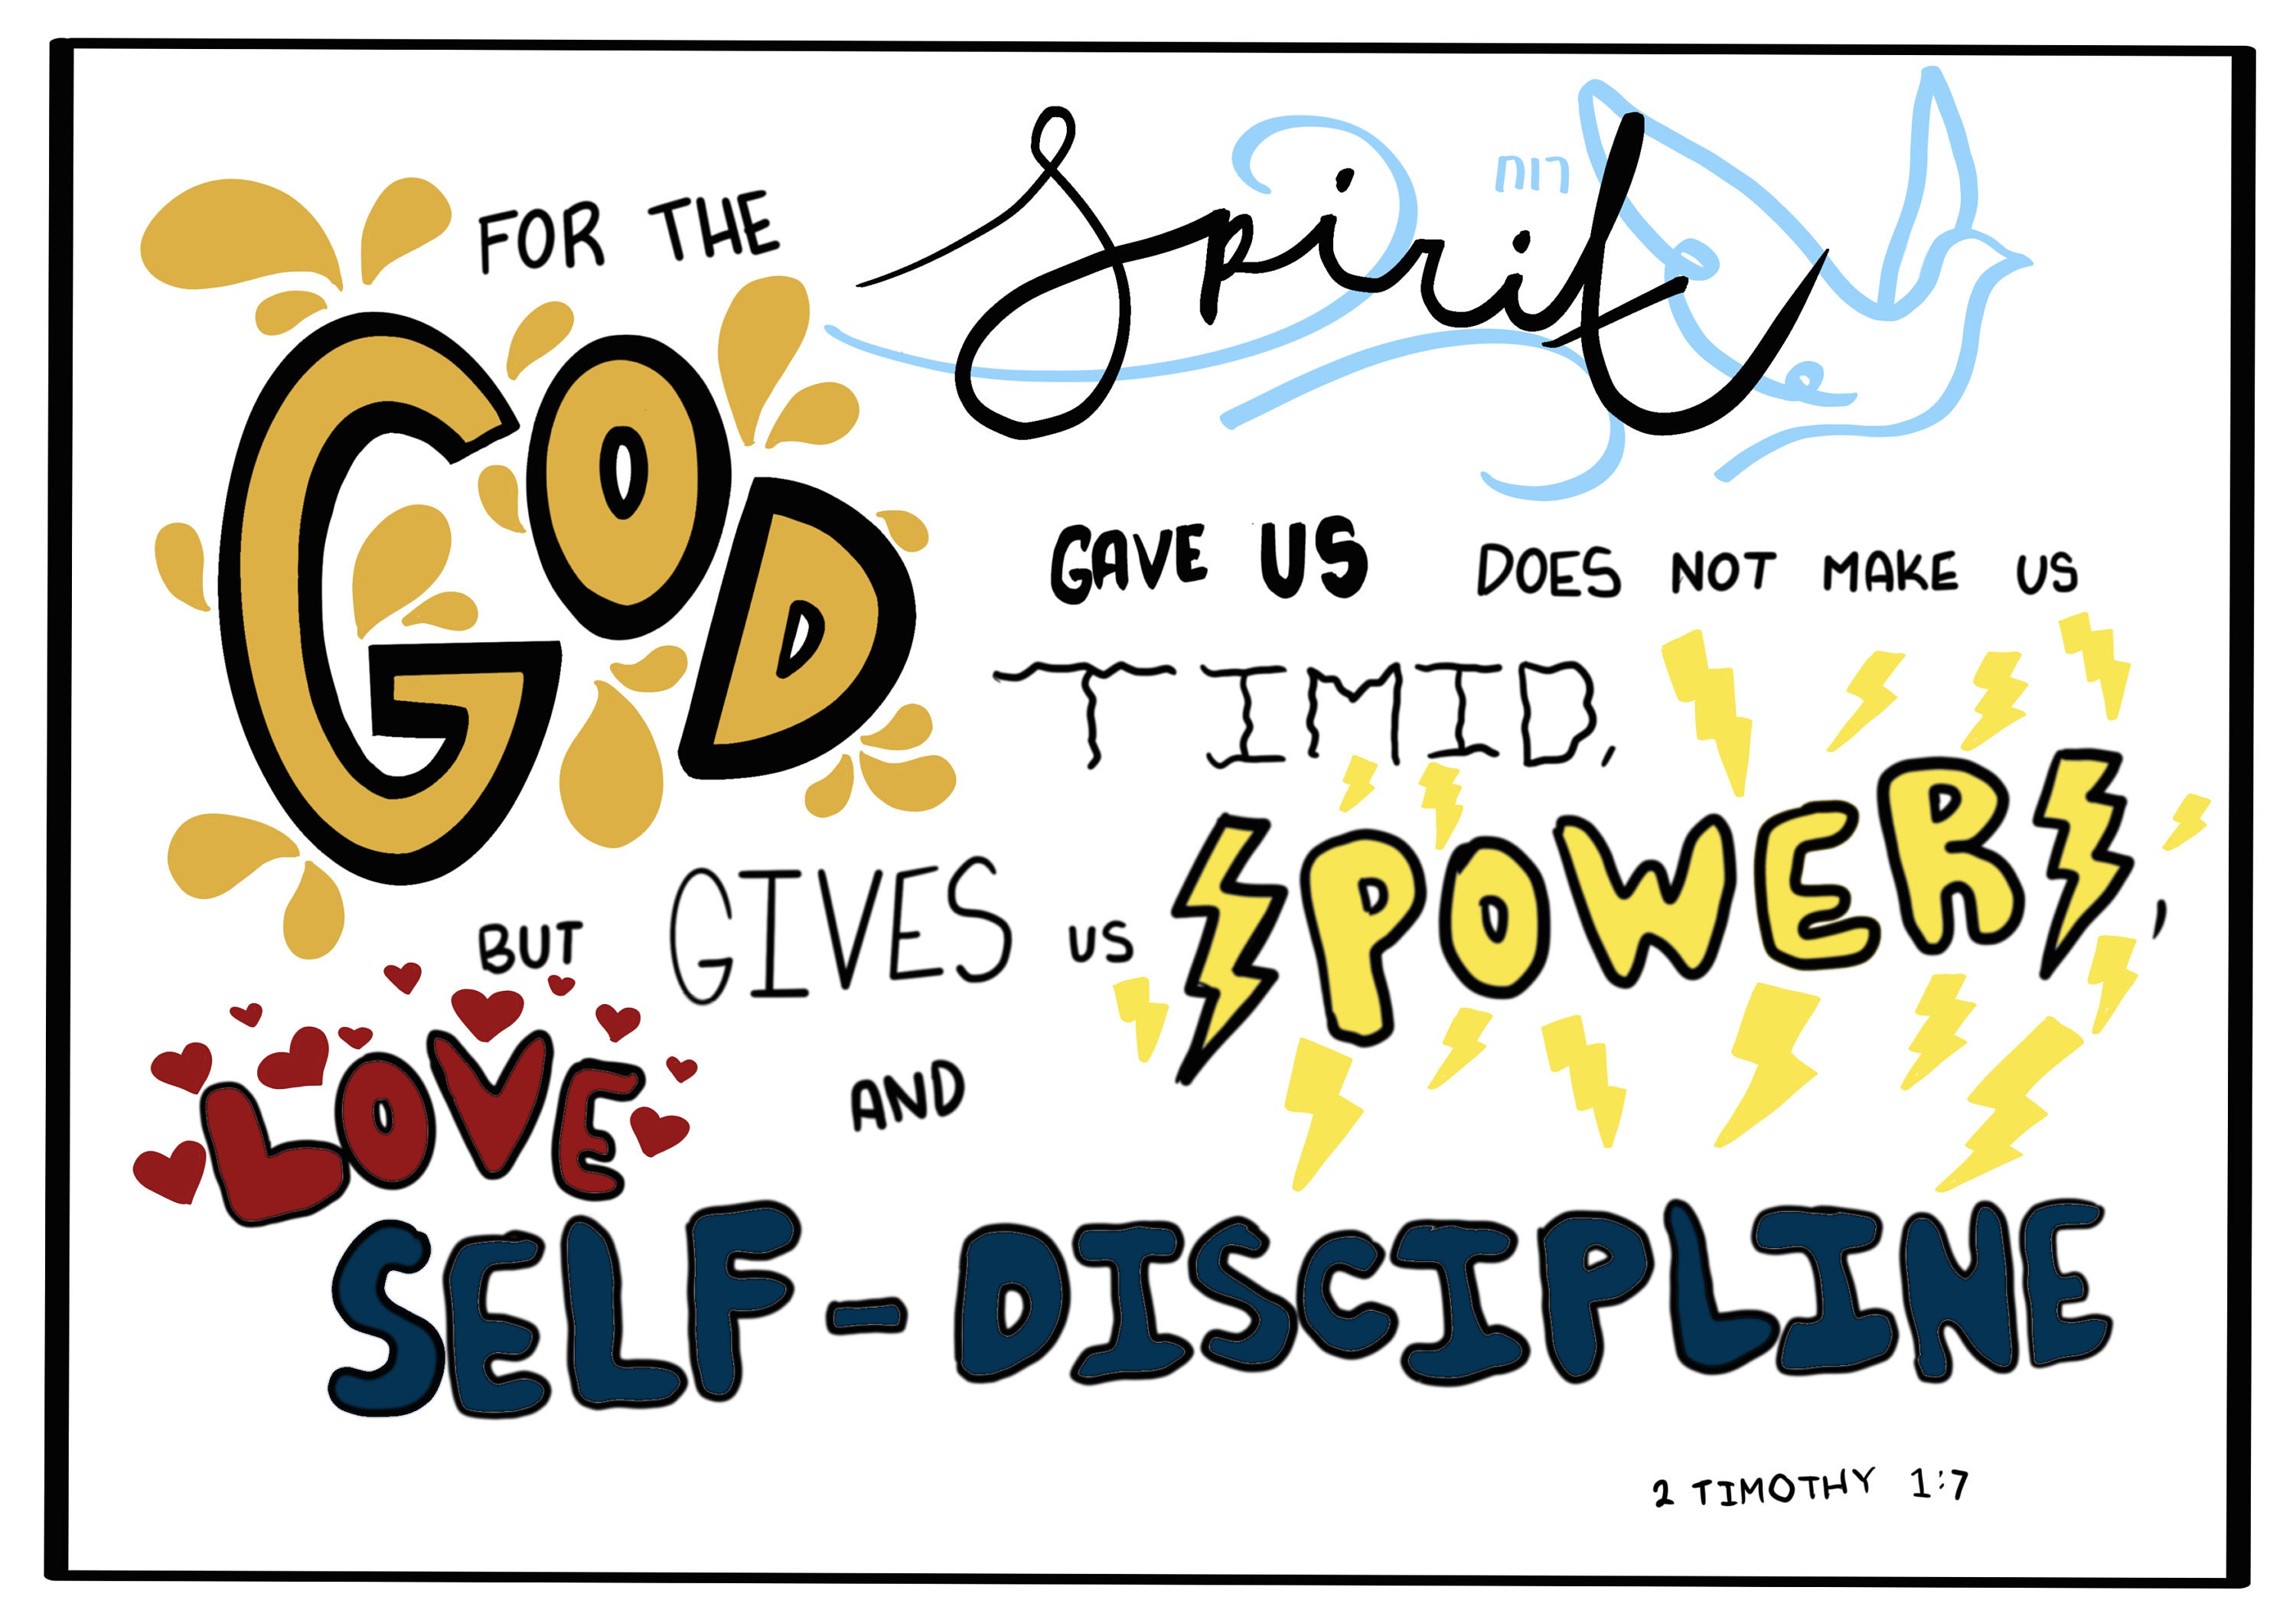 FOR THE Spirit
רוח
GOD GAVE US DOES NOT MAKE US
TIMID,
BUT GIVES US POWER,
LOVE AND
SELF-DISCIPLINE
2 TIMOTHY 1:7